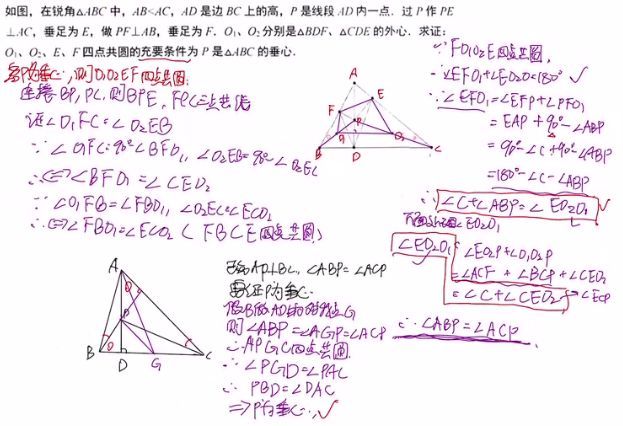 如图，在锐角△ABC 中，AB<AC，AD 是边 BC 上的高，P 是线段 AD 内一点．过 P 作 PE
⊥AC，垂足为 E，做 PF⊥AB，垂足为 F．O₁、O₂ 分别是△BDF、△CDE 的外心．求证：
O₁、O₂、E、F 四点共圆的充要条件为 P 是△ABC 的垂心．
若P为垂心，则O₁O₂EF四点共圆：
连接BP, PC, 则BPE, FPC三点共线
证∠O₁FC=∠O₂EB
∵∠O₁FC=90°-∠BFO₁, ∠O₂EB=90°-∠O₂EC
∴⇔∠BFO₁=∠CEO₂
∵∠O₁FB=∠FBO₁, ∠O₂EC=∠ECO₂
∴⇔∠FBO₁=∠ECO₂ (FBCE四点共圆)
A
E
F
P
O₁
O₂
B
D
C
∵FO₁O₂E四点共圆,
∴∠EFO₁+∠EO₂O₁=180° √
∵∠EFO₁=∠EFP+∠PFO₁
=EAP+90°-∠ABP
=90°-∠C+90°-∠ABP
=180°-∠C-∠ABP
∴∠C+∠ABP=∠EO₂O₁
∠EO₂O₁
=∠EO₂P+∠O₁O₂P
=∠ACF+∠BCP+∠CEO₂
=∠C+∠CEO₂
=∠ECP
∴∠ABP=∠ACP
A
P
B
D
G
C
已知AD⊥BC, ∠ABP=∠ACP
要证P为垂心
作B关于AD的对称点G
则∠ABP=∠AGP=∠ACP
∴APGC四点共圆
∴∠PGD=∠PAC
∴PBD=∠DAC
⇒P为垂心 √